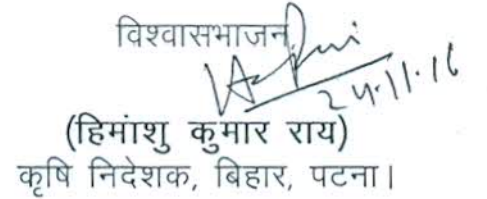 विश्वासभाजन
24.11.16
(हिमांशु कुमार राय)
कृषि निदेशक, बिहार, पटना।